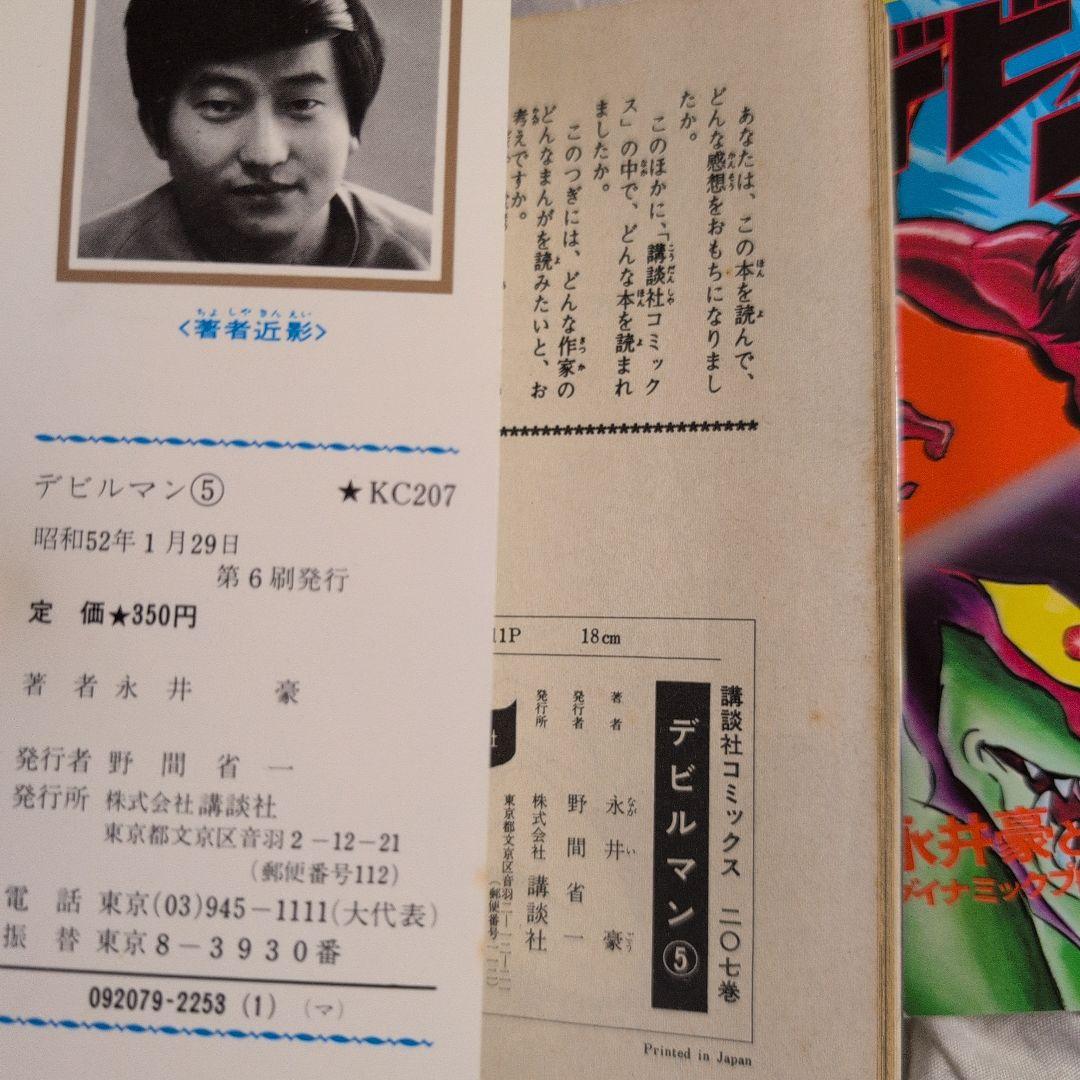 <著者近影>
ちよ しや きん えい
デビルマン⑤ ★KC207
昭和52年1月29日
第6刷発行
定 価★350円
著 者 永 井 豪
発行者 野 間 省 一
発行所 株式会社講談社
東京都文京区音羽2-12-21
(郵便番号112)
電 話 東京(03)945-1111(大代表)
振 替 東京8-3930番
092079-2253 (1) (マ)
あなたは、この本を読んで、
どんな感想をおもちになりまし
たか。
このほかに、「講談社コミック
ス」の中で、どんな本を読まれ
ましたか。
このつぎには、どんな作家の
どんなまんがを読みたいと、お
考えですか。
11P 18cm
講談社コミックス 二〇七巻
デビルマン⑤
著 者 永井 豪
発行者 野間省一
発行所 株式会社 講談社
東京都文京区音羽二-一二-二一
(郵便番号一一二)
Printed in Japan
デビ
永井豪と
ダイナミックプ